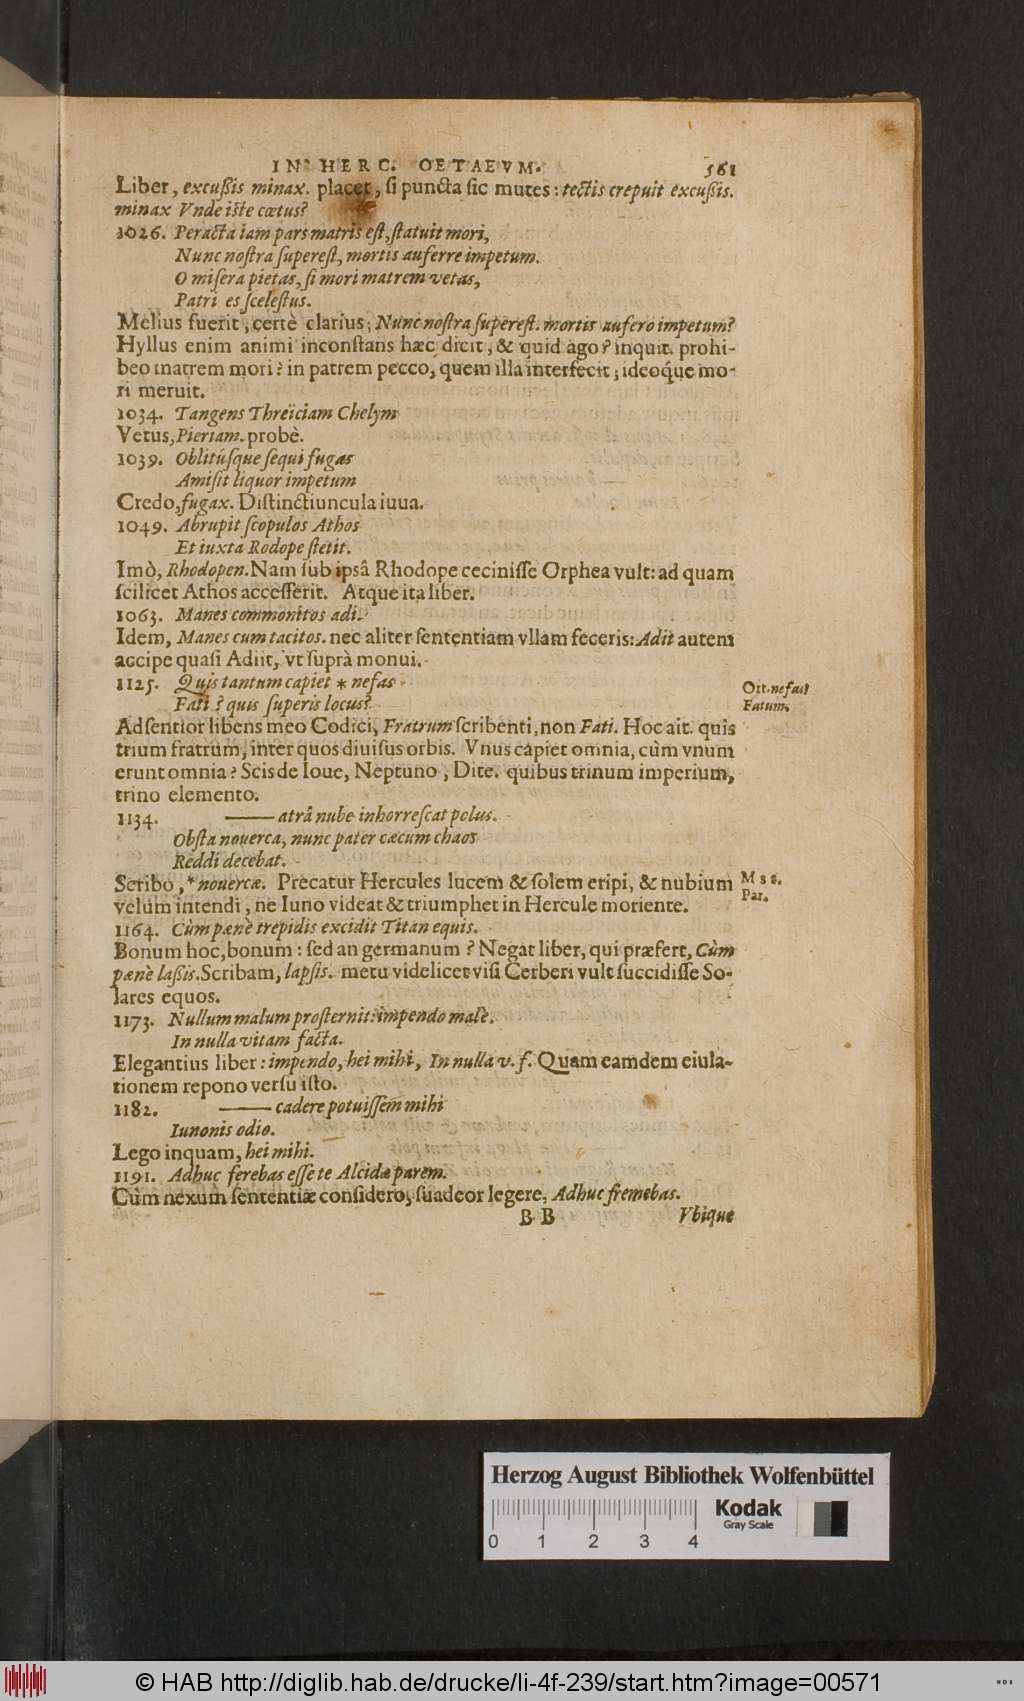 IN HERC. OETAEVM. 561
Liber, excußis minax. placet, si puncta sic mutes: tectis crepuit excußis.
minax Vnde iste cœtus?
1026. Peracta iam pars matris est, statuit mori,
Nunc nostra superest, mortis auferre impetum.
O misera pietas, si mori matrem vetas,
Patri es scelestus.
Melius fuerit, certè clarius; Nunc nostra superest. mortis aufero impetum?
Hyllus enim animi inconstans hæc dicit, & quid ago? inquit. prohi-
beo matrem mori? in patrem pecco, quem illa interfecit; ideoque mo-
ri meruit.
1034. Tangens Threïciam Chelym
Vetus, Pieriam. probè.
1039. Oblitúsque sequi fugas
Amisit liquor impetum
Credo, fugax. Distinctiuncula iuua.
1049. Abrupit scopulos Athos
Et iuxta Rodope stetit.
Imò, Rhodopen. Nam sub ipsâ Rhodope cecinisse Orphea vult: ad quam
scilicet Athos accesserit. Atque ita liber.
1063. Manes commonitos adi.
Idem, Manes cum tacitos. nec aliter sententiam vllam feceris: Adit autem
accipe quasi Adiit, vt suprà monui.
1125. Quis tantum capiet * nefas
Fati? quis superis locus?
Ort. nefas?
Fatum.
Adsentior libens meo Codici, Fratrum scribenti, non Fati. Hoc ait. quis
trium fratrum, inter quos diuisus orbis. Vnus capiet omnia, cùm vnum
erunt omnia? Scis de Ioue, Neptuno, Dite. quibus trinum imperium,
trino elemento.
1134. —— atrâ nube inhorrescat polus.
Obsta nouerca, nunc pater cæcum chaos
Reddi decebat.
Scribo, * nouercæ. Precatur Hercules lucem & solem eripi, & nubium
velum intendi, ne Iuno videat & triumphet in Hercule moriente.
Mss.
Par.
1164. Cùm pænè trepidis excidit Titan equis.
Bonum hoc, bonum: sed an germanum? Negat liber, qui præfert, Cùm
pænè laßis. Scribam, lapsis. metu videlicet visi Cerberi vult succidisse So-
lares equos.
1173. Nullum malum prosternit: impendo malè.
In nulla vitam facta.
Elegantius liber: impendo, hei mihi, In nulla v. f. Quam eamdem eiula-
tionem repono versu isto.
1182. —— cadere potuissem mihi
Iunonis odio.
Lego inquam, hei mihi.
1191. Adhuc ferebas esse te Alcidæ parem.
Cùm nexum sententiæ considero, suadeor legere, Adhuc fremebas.
BB Vbique
Herzog August Bibliothek Wolfenbüttel
Kodak
Gray Scale
0 1 2 3 4
© HAB http://diglib.hab.de/drucke/li-4f-239/start.htm?image=00571